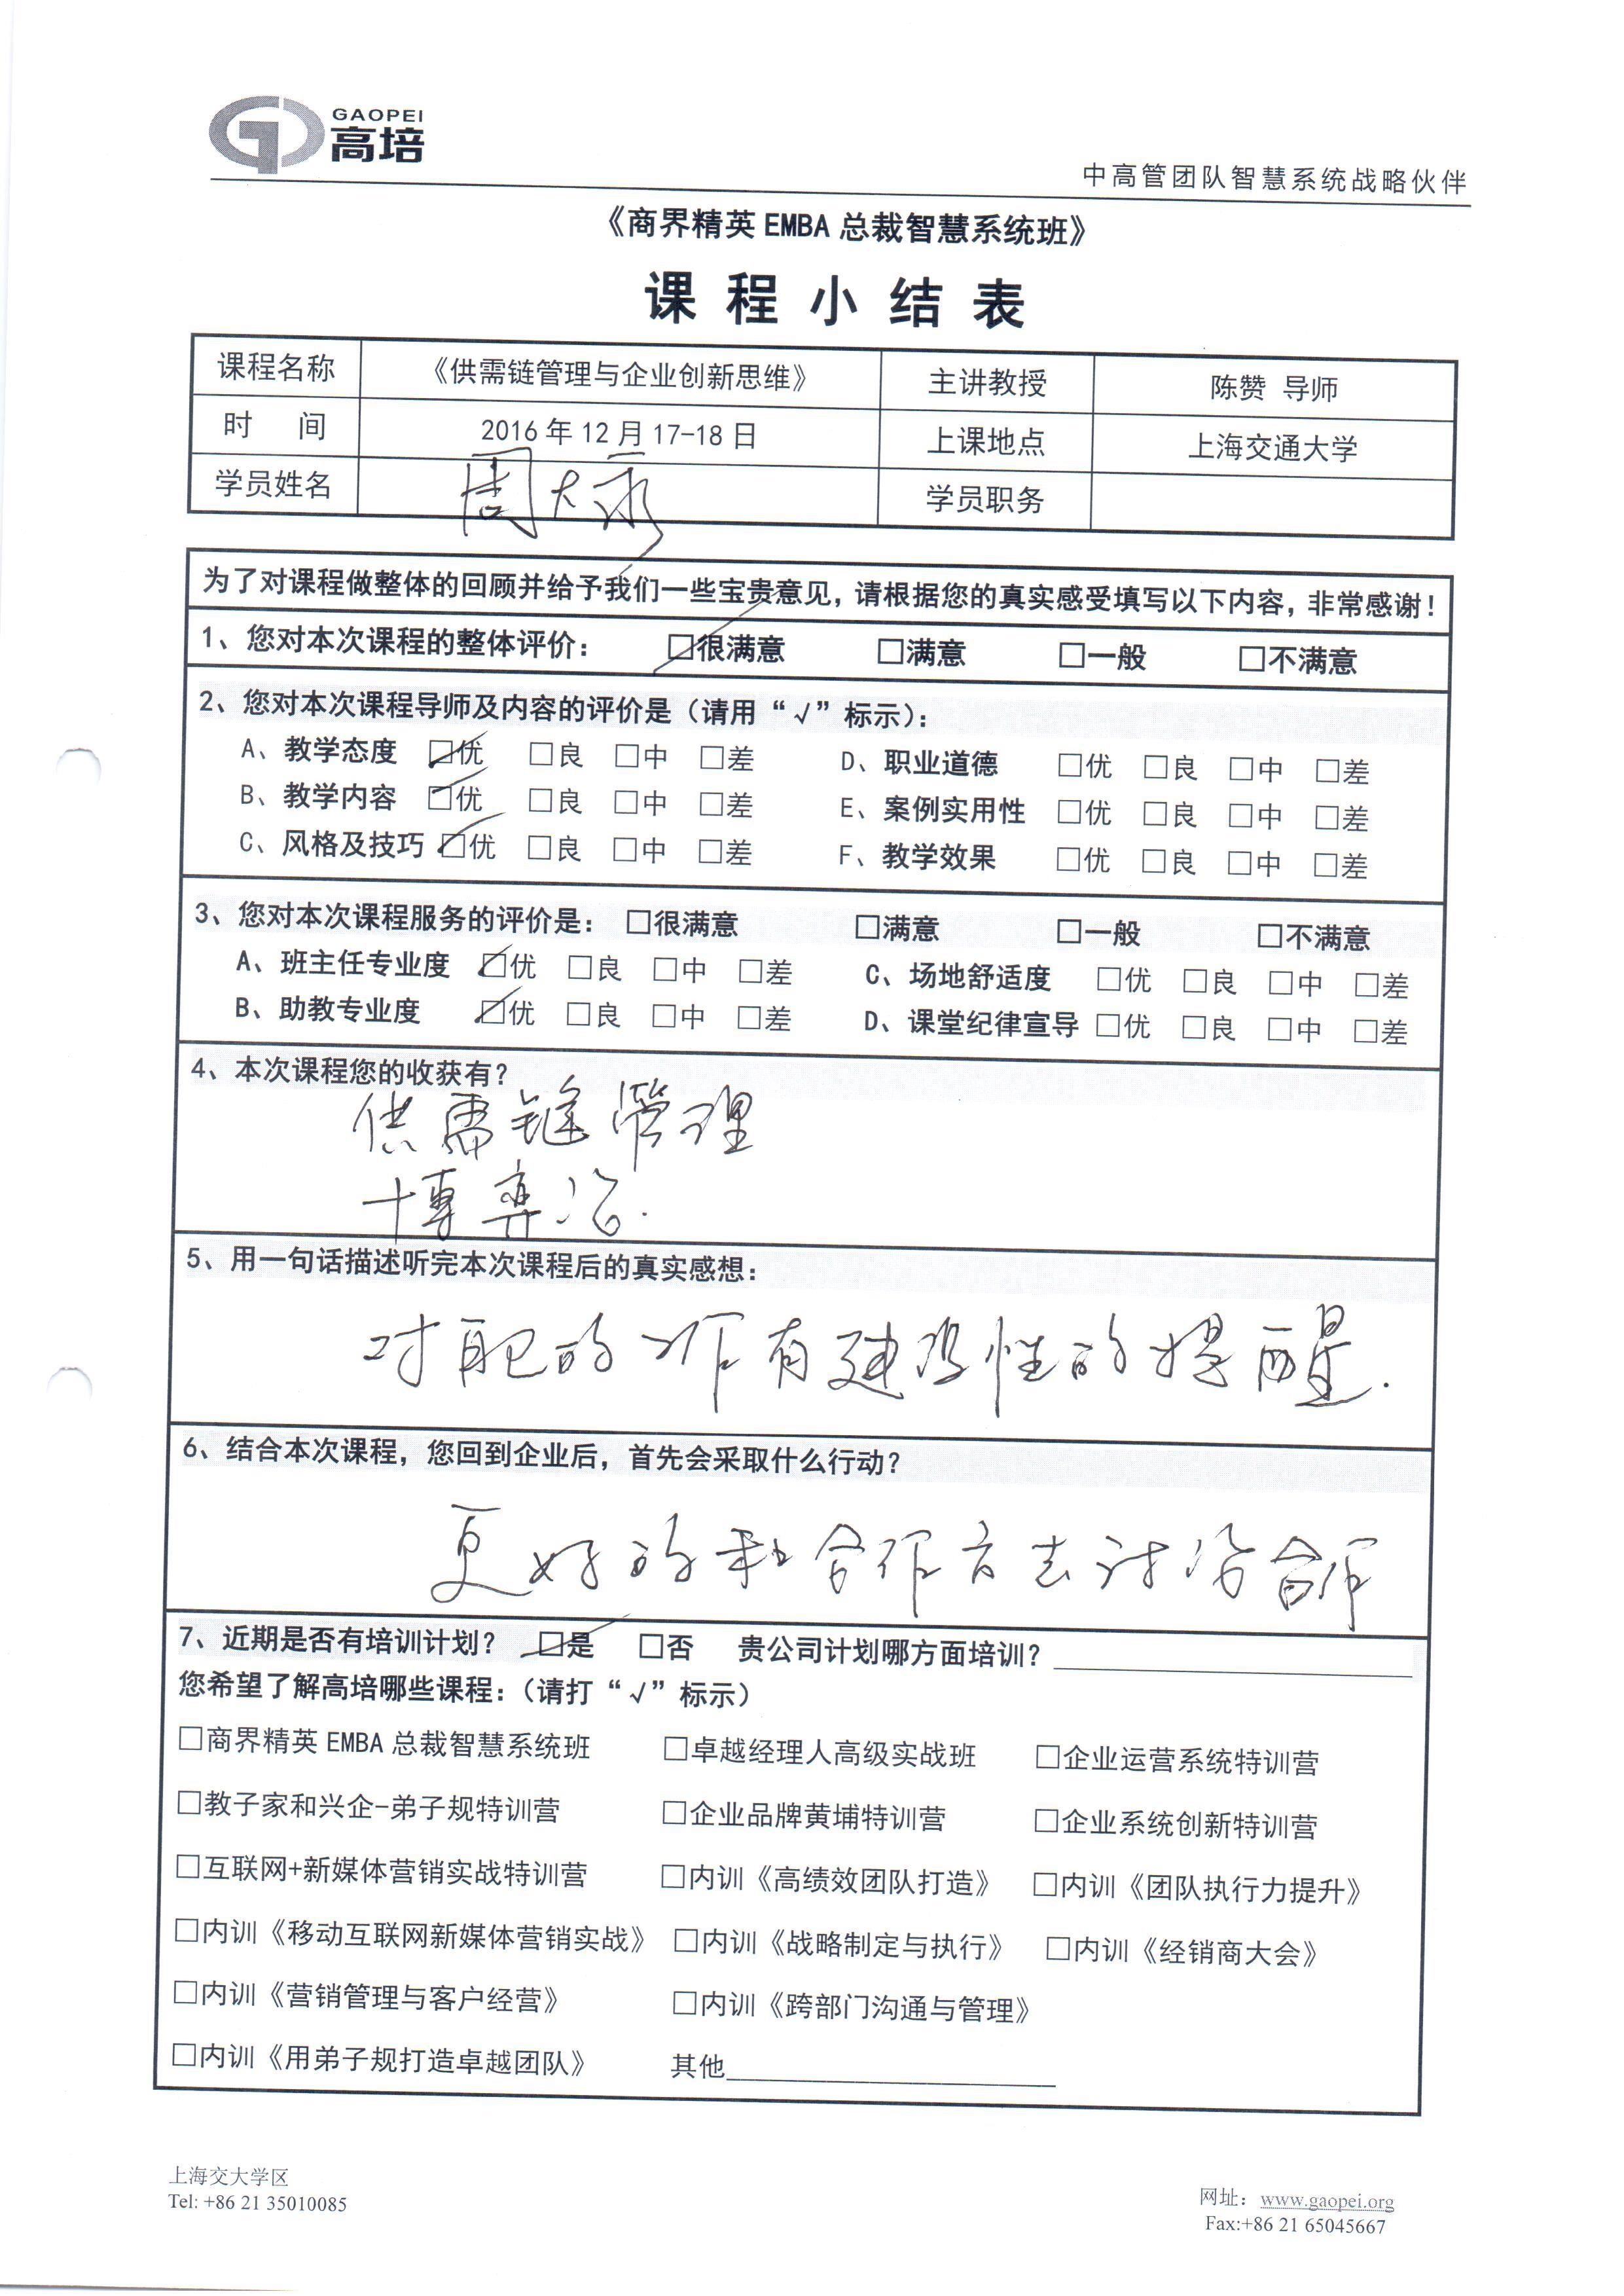 GAOPEI
高培
中高管团队智慧系统战略伙伴
《商界精英 EMBA 总裁智慧系统班》
课 程 小 结 表
课程名称 《供需链管理与企业创新思维》 主讲教授 陈赞 导师
时 间 2016 年 12 月 17-18 日 上课地点 上海交通大学
学员姓名 周大永 学员职务
为了对课程做整体的回顾并给予我们一些宝贵意见，请根据您的真实感受填写以下内容，非常感谢！
1、您对本次课程的整体评价： ☑很满意 □满意 □一般 □不满意
2、您对本次课程导师及内容的评价是（请用“√”标示）：
A、教学态度 ☑优 □良 □中 □差 D、职业道德 □优 □良 □中 □差
B、教学内容 ☑优 □良 □中 □差 E、案例实用性 □优 □良 □中 □差
C、风格及技巧 ☑优 □良 □中 □差 F、教学效果 □优 □良 □中 □差
3、您对本次课程服务的评价是： □很满意 □满意 □一般 □不满意
A、班主任专业度 ☑优 □良 □中 □差 C、场地舒适度 □优 □良 □中 □差
B、助教专业度 ☑优 □良 □中 □差 D、课堂纪律宣导 □优 □良 □中 □差
4、本次课程您的收获有？
供需链管理
博弈论.
5、用一句话描述听完本次课程后的真实感想：
对自己的工作有建设性的提醒.
6、结合本次课程，您回到企业后，首先会采取什么行动？
更好的和合作方去讨论合作
7、近期是否有培训计划？ ☑是 □否 贵公司计划哪方面培训？
您希望了解高培哪些课程：（请打“√”标示）
□商界精英 EMBA 总裁智慧系统班 □卓越经理人高级实战班 □企业运营系统特训营
□教子家和兴企-弟子规特训营 □企业品牌黄埔特训营 □企业系统创新特训营
□互联网+新媒体营销实战特训营 □内训《高绩效团队打造》 □内训《团队执行力提升》
□内训《移动互联网新媒体营销实战》 □内训《战略制定与执行》 □内训《经销商大会》
□内训《营销管理与客户经营》 □内训《跨部门沟通与管理》
□内训《用弟子规打造卓越团队》 其他
上海交大学区
Tel: +86 21 35010085
网址：www.gaopei.org
Fax:+86 21 65045667